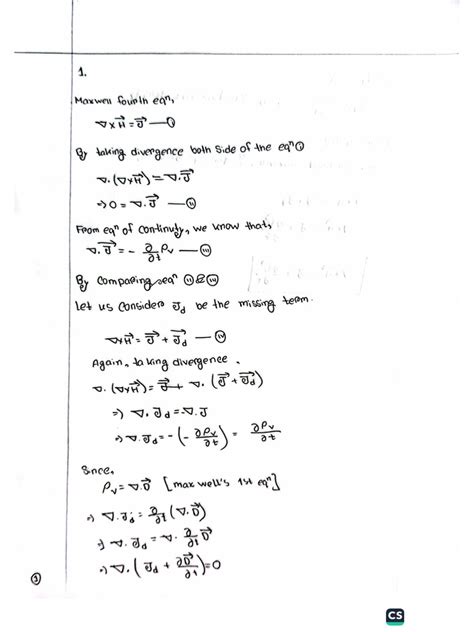 1.
Maxwell fourth eqⁿ,
∇×H⃗ = J⃗ —(i)
By taking divergence both side of the eqⁿ(i)
∇.(∇×H⃗) = ∇.J⃗
⇒ 0 = ∇.J⃗ —(ii)
From eqⁿ of continuty, we know that,
∇.J⃗ = - ∂/∂t ρᵥ —(iii)
By comparing eqⁿ (ii) & (iii)
Let us consider J⃗d be the missing term.
∇×H⃗ = J⃗ + J⃗d —(iv)
Again, taking divergence.
∇.(∇×H⃗) = ∇. (J⃗ + J⃗d)
⇒ ∇. J⃗d = -∇. J
⇒ ∇. J⃗d = -(-∂ρᵥ/∂t) = ∂ρᵥ/∂t
Since,
ρᵥ = ∇.D⃗ [maxwell's 1st eqⁿ]
⇒ ∇.J⃗d = ∂/∂t (∇.D⃗)
⇒ ∇.J⃗d = ∇. ∂/∂t D⃗
⇒ ∇. (J⃗d + ∂D⃗/∂t) = 0
CS